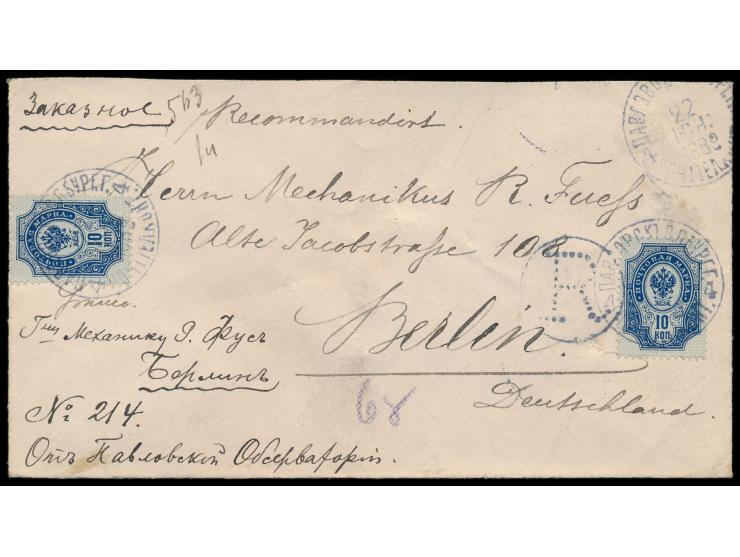 Заказное 563
Recommandirt.
Herrn Mechanikus R. Fuess
Alte Jacobstraße 108
Berlin.
Deutschland.
Гну Механику Р. Фусъ
Берлинъ
№ 214.
Отъ Павловской Обсерваторіи.
68
ПОЧТОВАЯ МАРКА
10
КОП
ПОЧТОВАЯ МАРКА
10
КОП
22